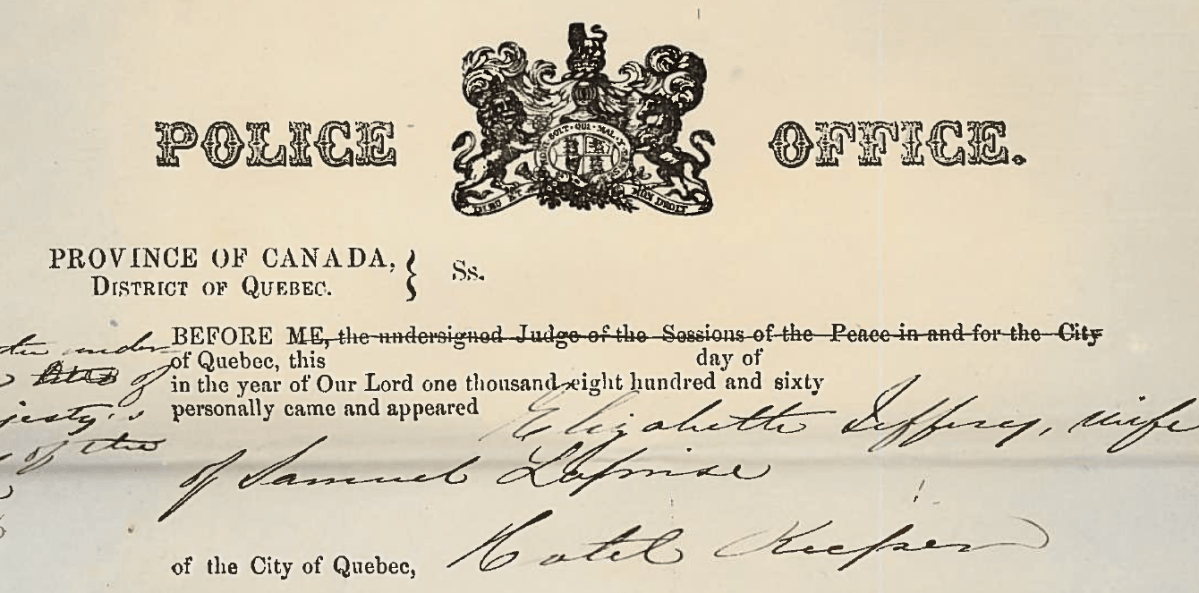 POLICE OFFICE.
HONI SOIT QUI MAL Y PENSE
DIEU ET MON DROIT
PROVINCE OF CANADA,
DISTRICT OF QUEBEC. } Ss.
BEFORE ME, the undersigned Judge of the Sessions of the Peace in and for the City
under
of Quebec, this day of
of
in the year of Our Lord one thousand eight hundred and sixty
personally came and appeared Elizabeth Jeffrey, wife
of the
of Samuel Laprise
of the City of Quebec, Hotel Keeper